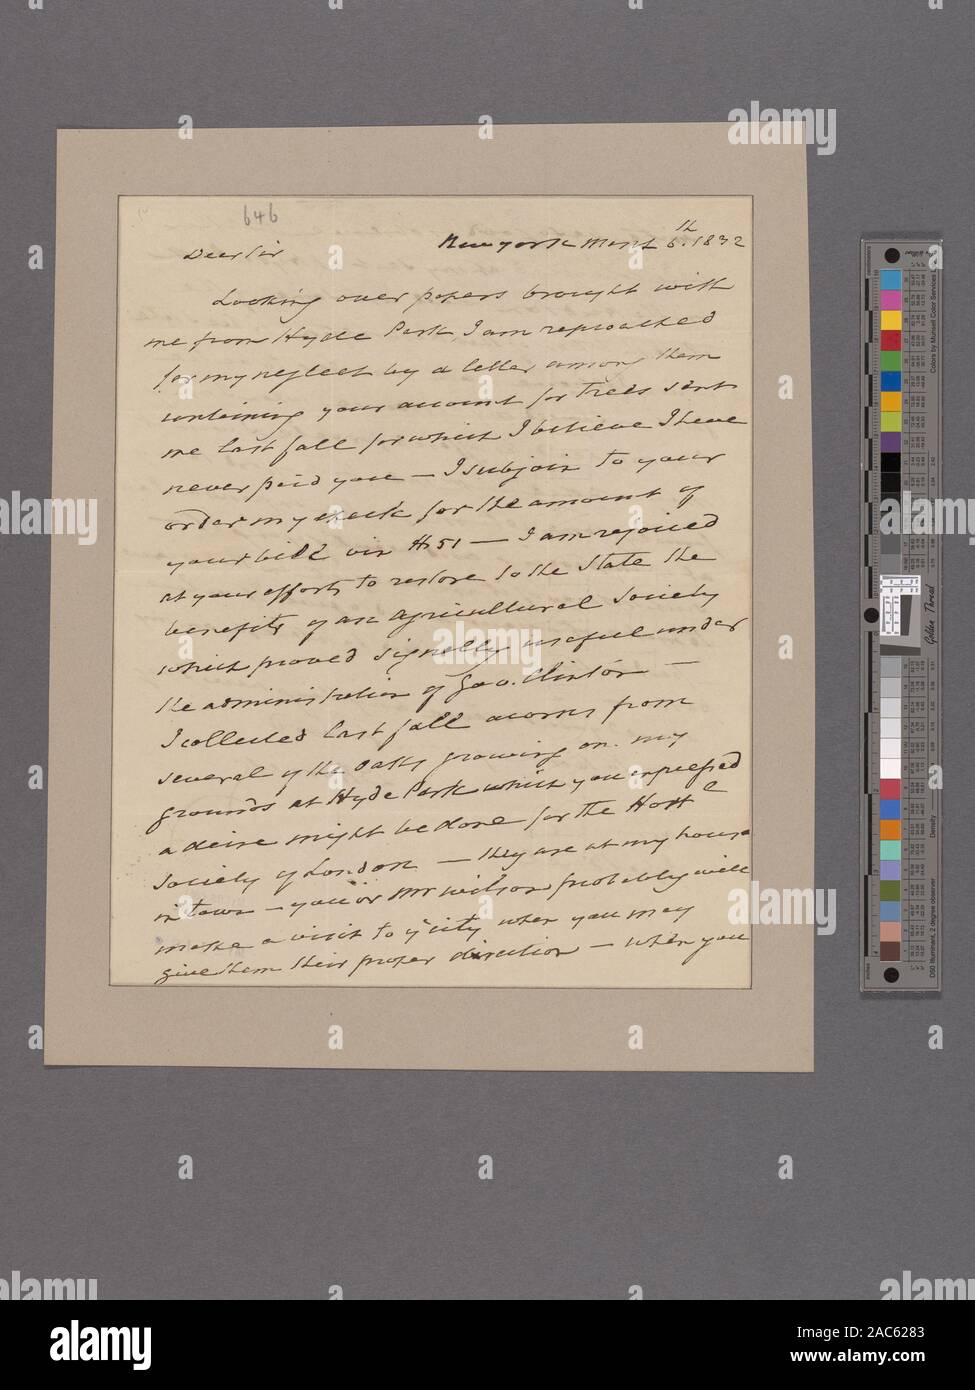 646
Newyork March 6.th 1832
Dear Sir
Looking over papers brought with
me from Hyde Park, I am reproached
for my neglect by a letter among them
containing your account for Trees sent
me last fall for which I believe I have
never paid you — I subjoin to your
order my check for the amount of
your bill viz $51 — I am rejoiced
at your efforts to restore to the State the
benefits of an Agricultural Society
which proved signally useful under
the administration of Gov. Clinton —
I collected last fall acorns from
several of the Oaks growing on my
grounds at Hyde Park which you expressed
a desire might be done for the Hortl
Society of London — they are at my house
in town — you or Mr Wilson probably will
make a visit to ye City when you may
give them their proper direction — when you
alamy
Golden Thread
Colors by Munsell Color Services
D50 Illuminant, 2 degree observer
Density
inches
Image ID: 2AC6283
www.alamy.com